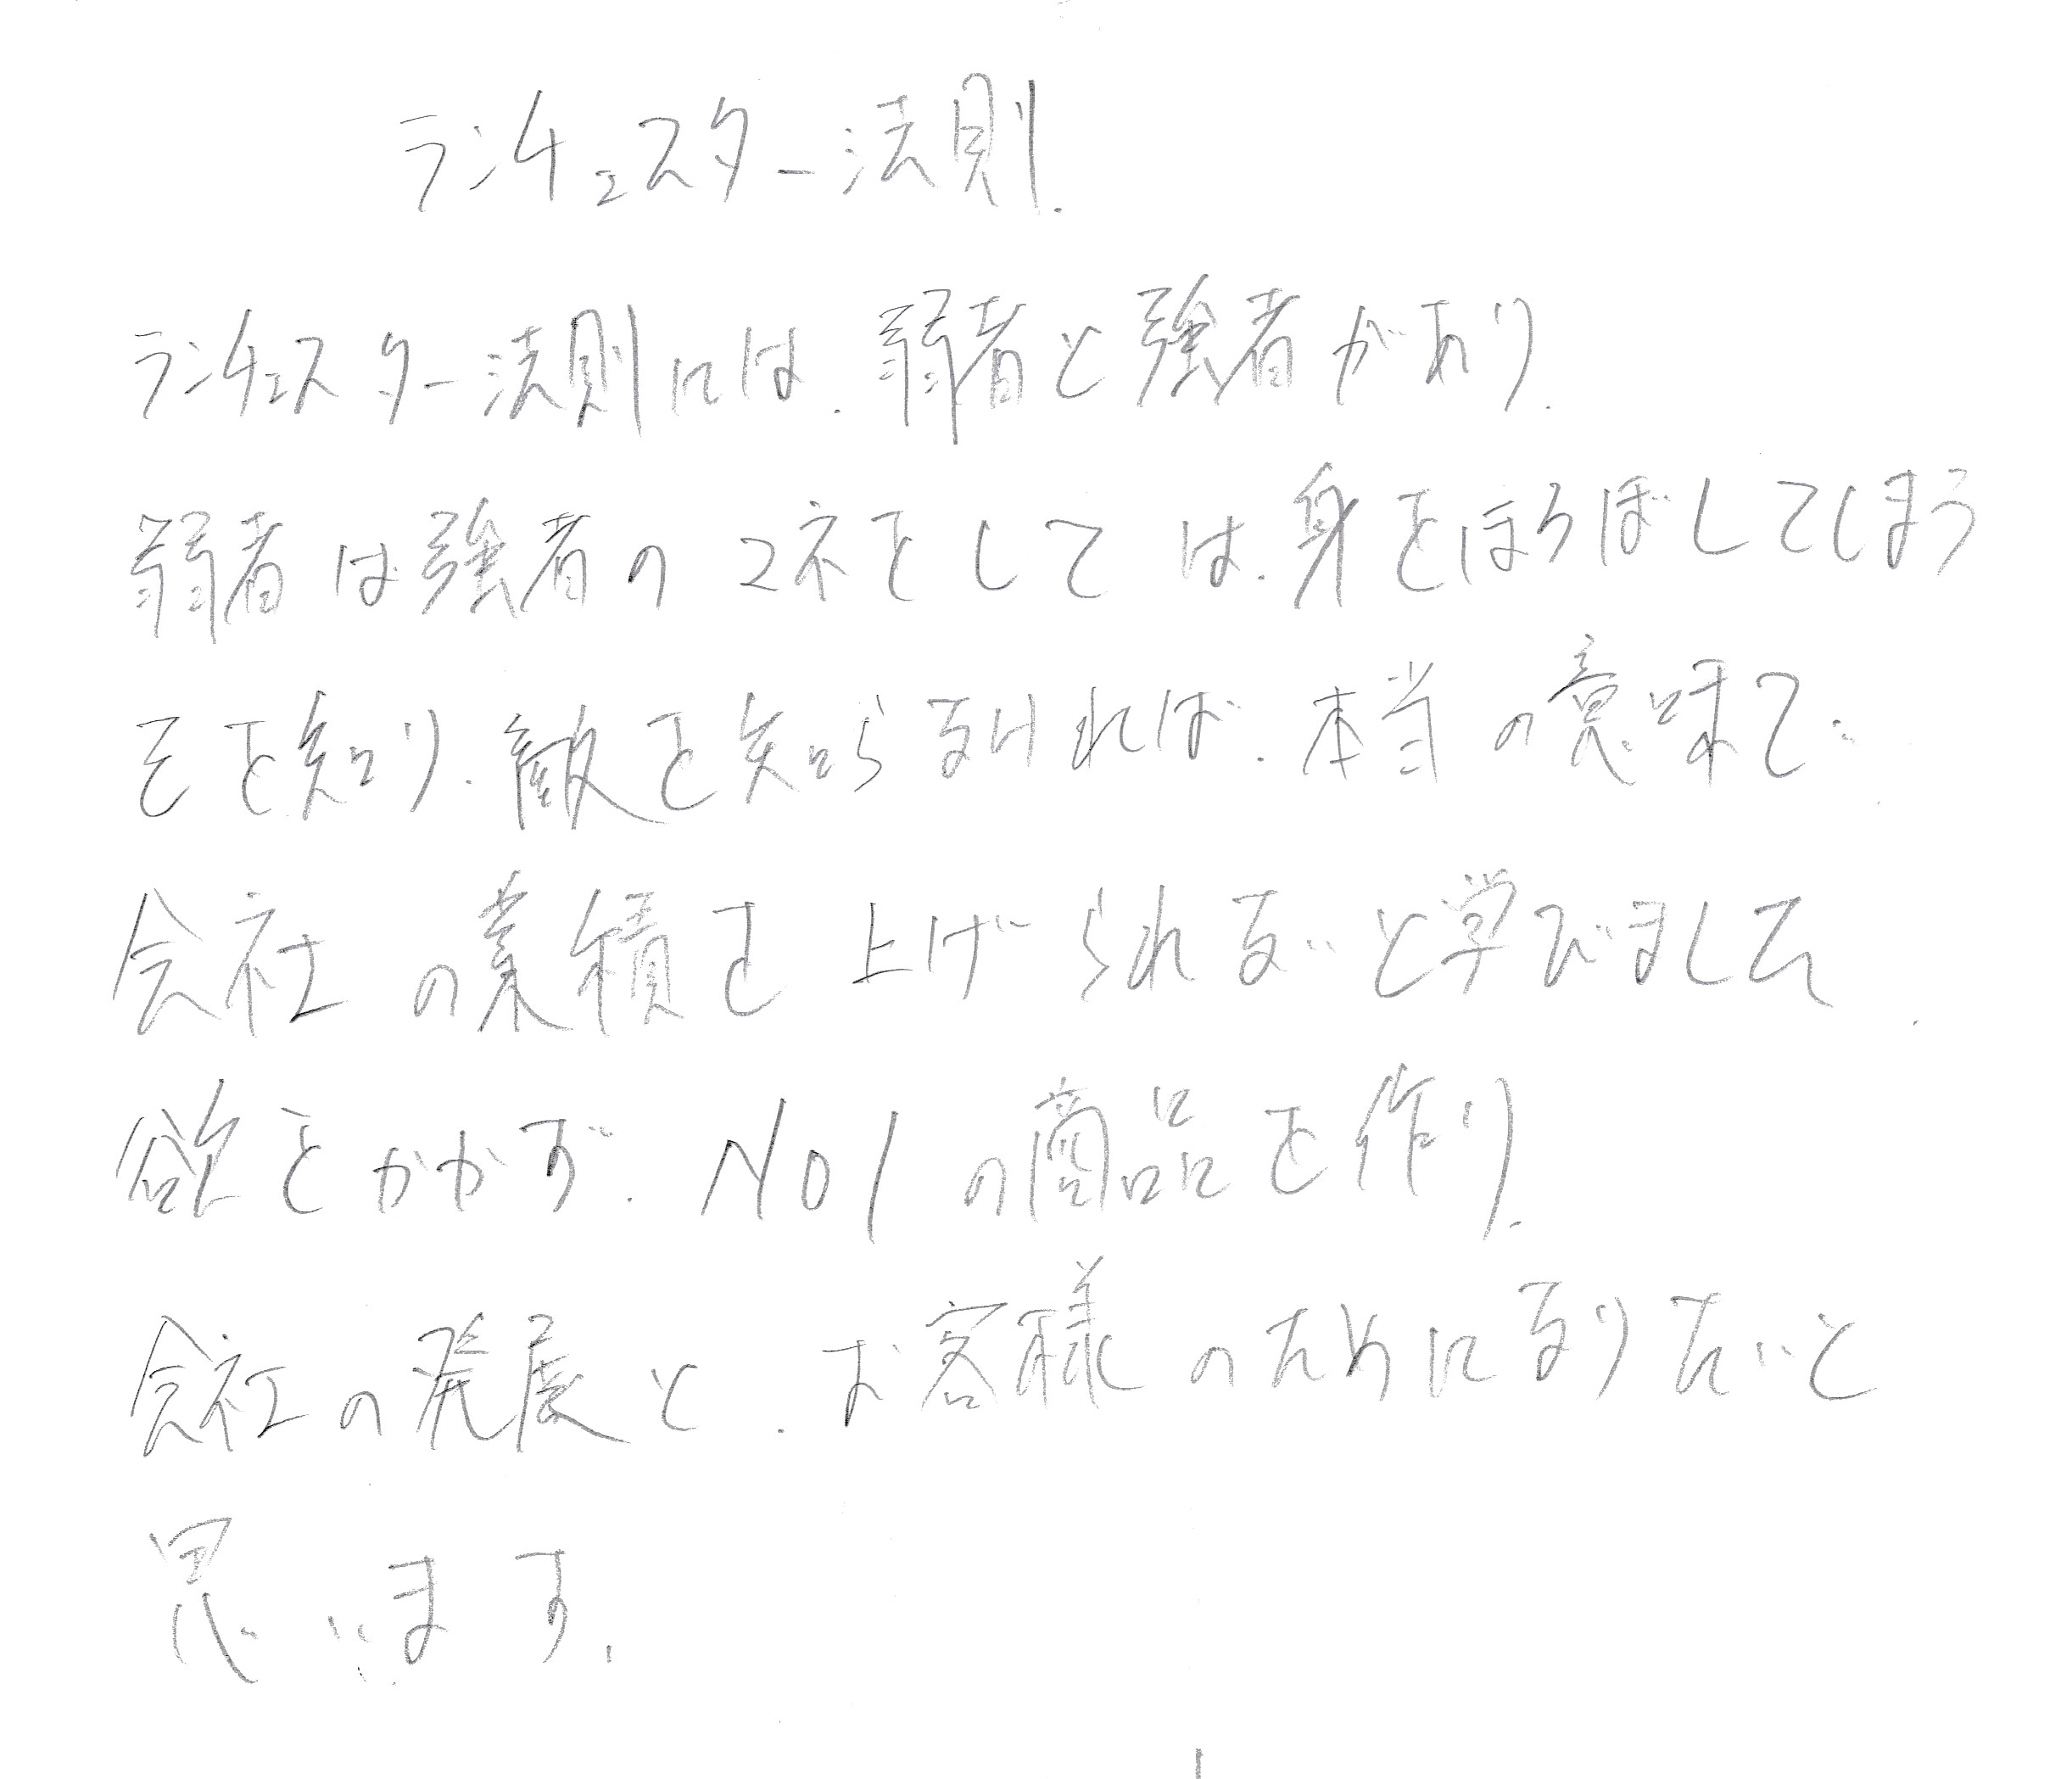 ランチェスター法則.
ランチェスター法則には.弱者と強者があり.
弱者は強者のマネをしては.身をほろぼしてしまう
己を知り.敵を知らなければ.本当の意味で.
会社の業績を上げられないと学びました.
欲をかかず.NO1の商品を作り.
会社の発展と.お客様のためになりたいと
思います.